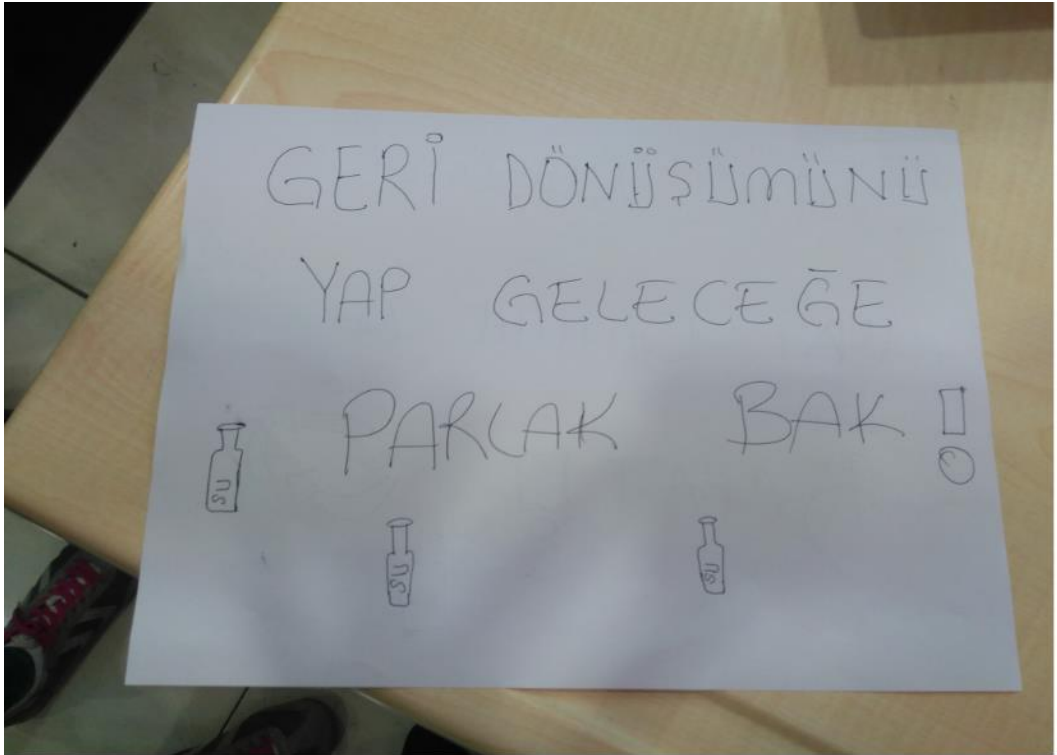 GERİ DÖNÜŞÜMÜNÜ
YAP GELECEĞE
PARLAK BAK!
SU
SU
SU